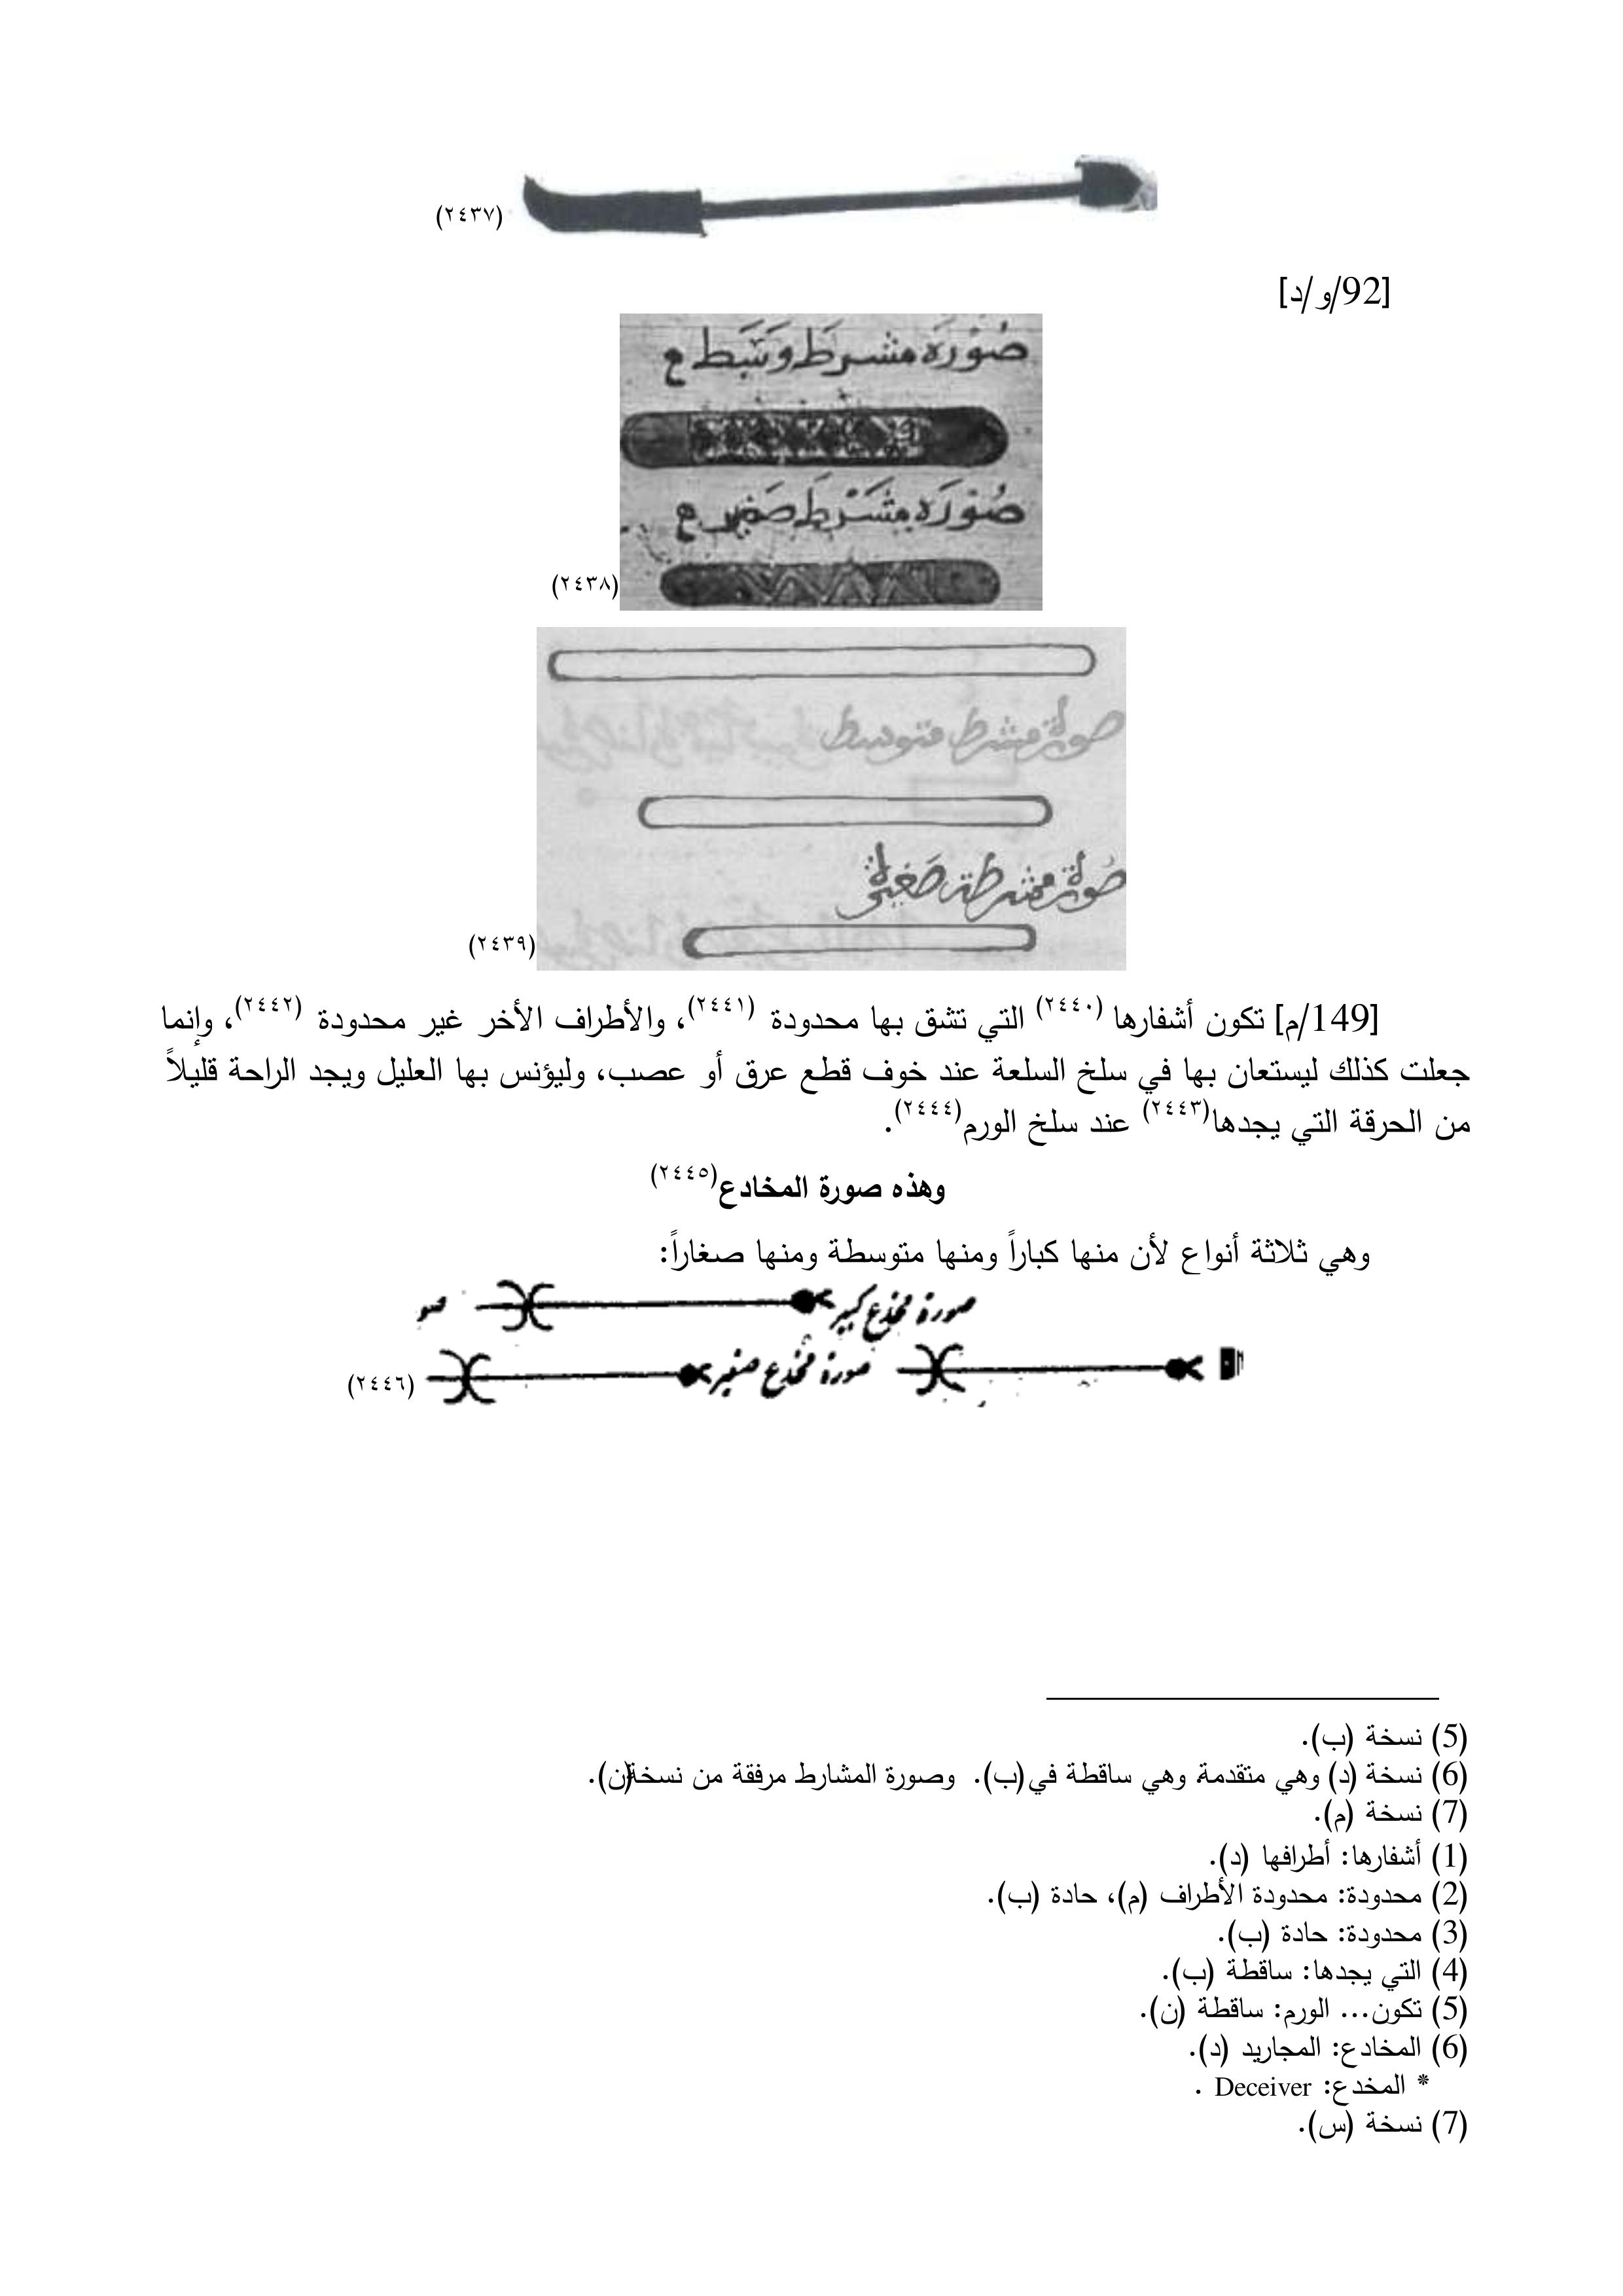 (٢٤٣٧)
[92/و/د]
صُوْرَه مشرط وَسَط
صُوْرَه مِشَرْط صَغير
(٢٤٣٨)
صورة مشرط متوسط
صُورة مشرطة صَغيرة
(٢٤٣٩)
[149/م] تكون أشفارها (٢٤٤٠) التي تشق بها محدودة (٢٤٤١)، والأطراف الأخر غير محدودة (٢٤٤٢)، وإنما
جعلت كذلك ليستعان بها في سلخ السلعة عند خوف قطع عرق أو عصب، وليؤنس بها العليل ويجد الراحة قليلاً
من الحرقة التي يجدها(٢٤٤٣) عند سلخ الورم(٢٤٤٤).
وهذه صورة المخادع(٢٤٤٥)
وهي ثلاثة أنواع لأن منها كباراً ومنها متوسطة ومنها صغاراً:
صورة مخدع كبير صو
صورة مخدع صغير
(٢٤٤٦)
(5) نسخة (ب).
(6) نسخة (د) وهي متقدمة، وهي ساقطة في (ب). وصورة المشارط مرفقة من نسخة(ن).
(7) نسخة (م).
(1) أشفارها: أطرافها (د).
(2) محدودة: محدودة الأطراف (م)، حادة (ب).
(3) محدودة: حادة (ب).
(4) التي يجدها: ساقطة (ب).
(5) تكون... الورم: ساقطة (ن).
(6) المخادع: المجاريد (د).
* المخدع: Deceiver .
(7) نسخة (س).